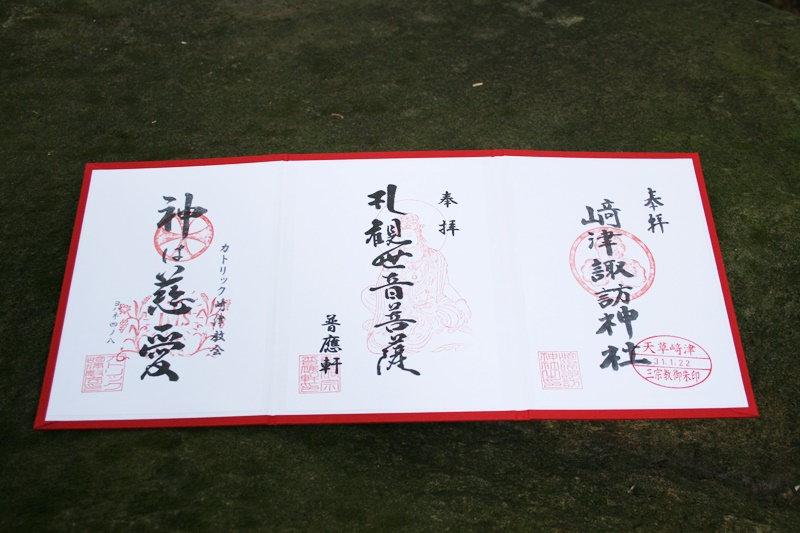 奉拝
﨑津諏訪神社
天草﨑津
31.1.22
三宗教御朱印
奉拝
礼観世音菩薩
普應軒
カトリック﨑津教会
神は慈愛
ヨハネ四ノ八